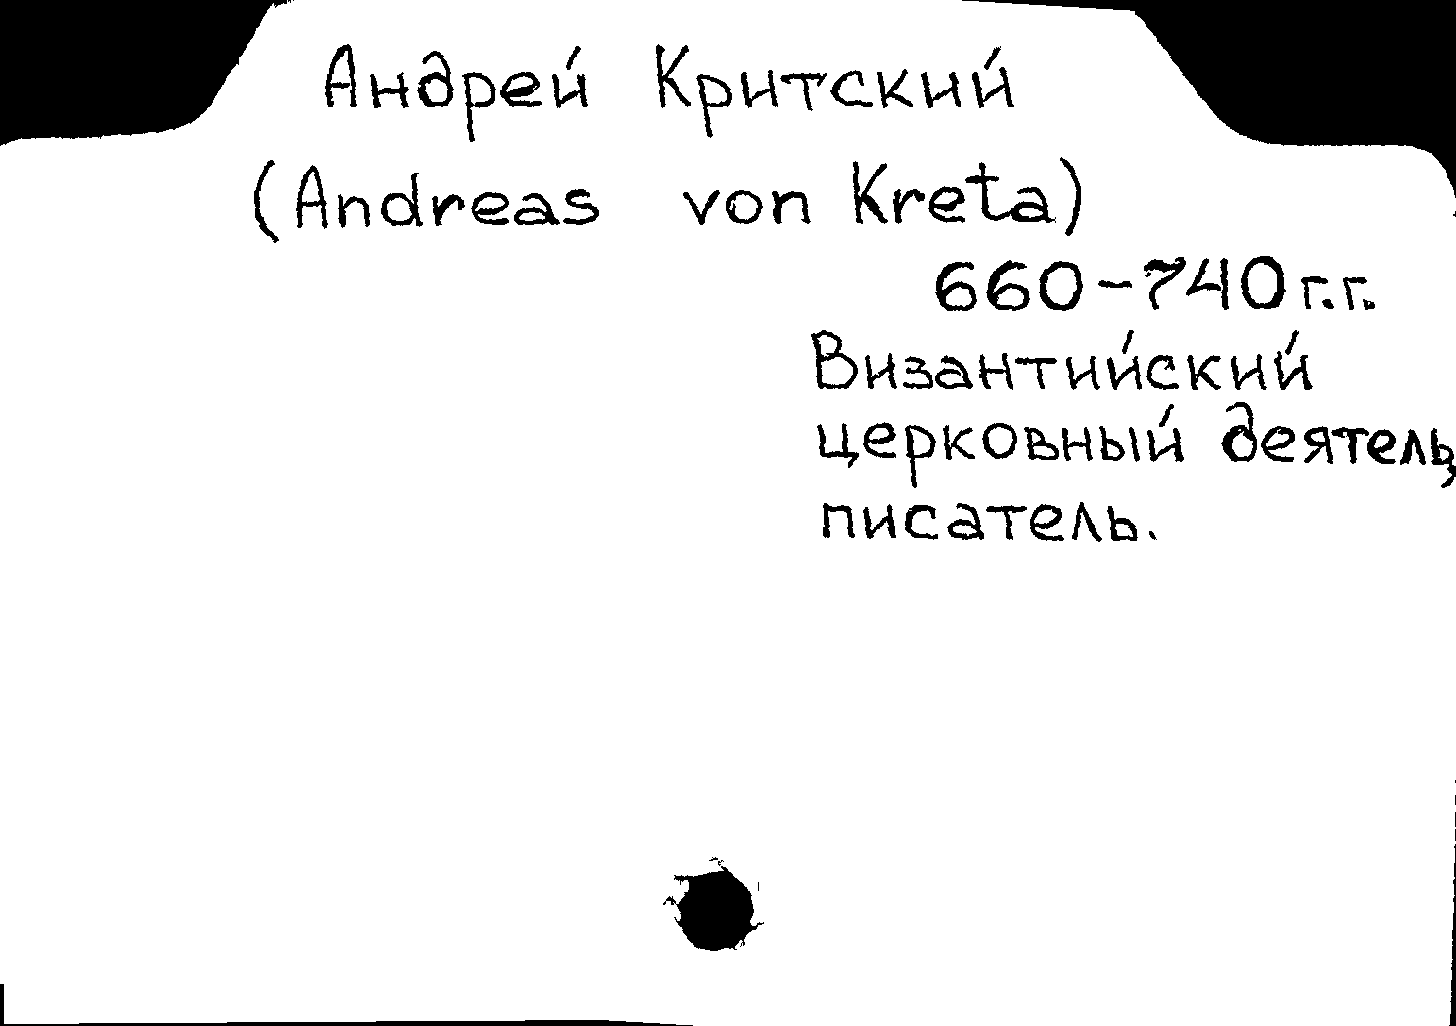 Андрей Критский
(Andreas von Kreta)
660-740 г.г.
Византийский
церковный деятель,
писатель.